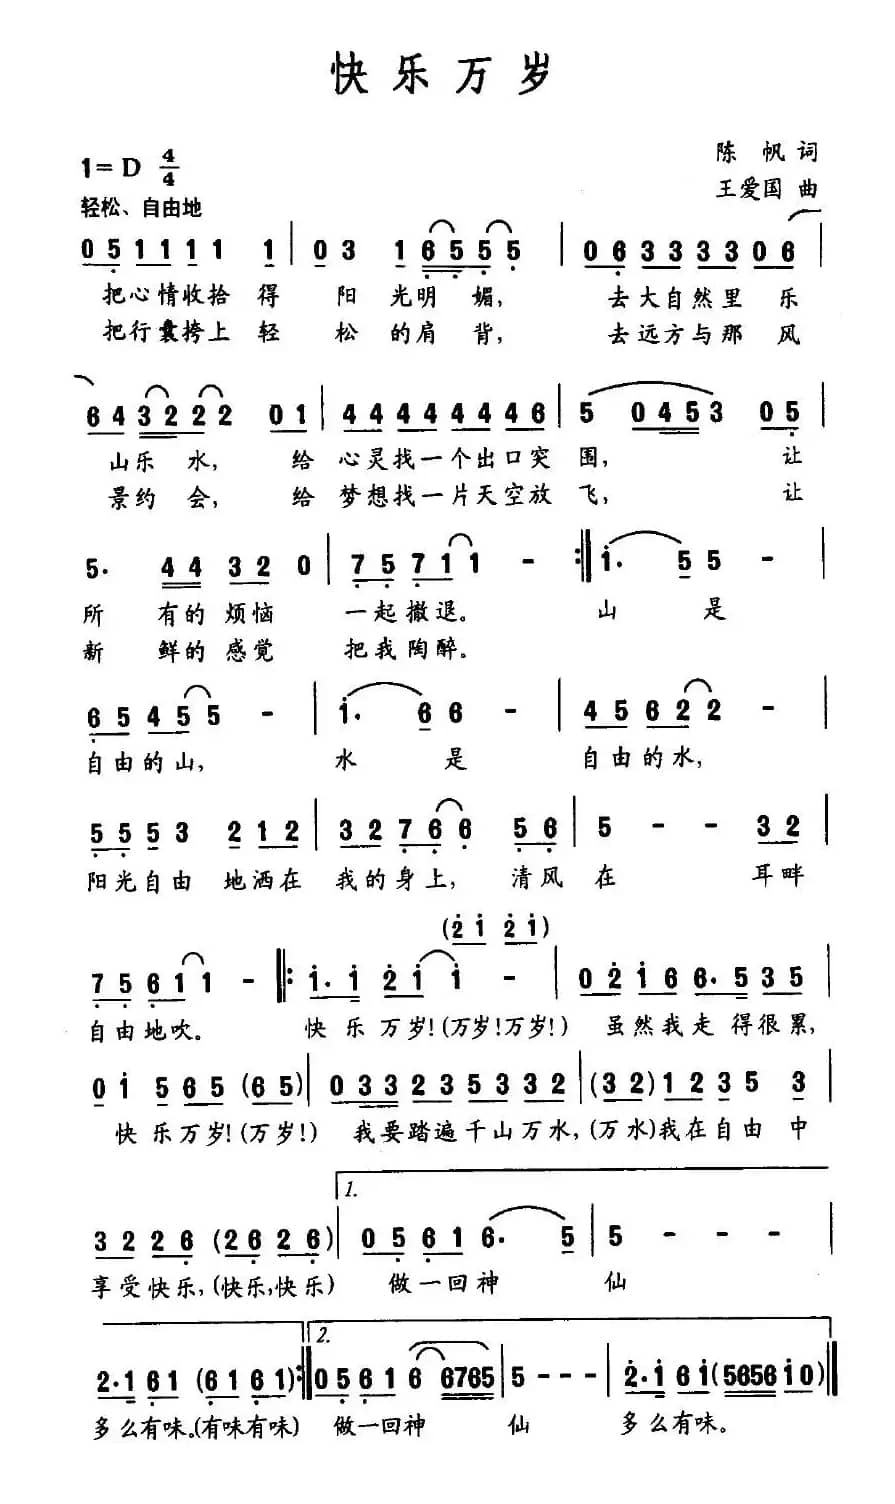 快乐万岁
陈 帆 词
1=D 4/4
王爱国 曲
轻松、自由地
0 5 1 1 1 1 1 | 0 3 1 6 5 5 5 | 0 6 3 3 3 3 3 0 6 |
把心情收拾 得 阳 光明 媚, 去大自然里 乐
把行囊挎上 轻 松 的肩 背, 去远方与那 风
6 4 3 2 2 2 0 1 | 4 4 4 4 4 4 4 4 6 | 5 0 4 5 3 0 5 |
山乐 水, 给 心灵找一个出口突 围, 让
景约 会, 给 梦想找一片天空放 飞, 让
5· 4 4 3 2 0 | 7 5 7 1 1 - :‖ i· 5 5 - |
所 有的 烦恼 一起 撤退。 山 是
新 鲜的 感觉 把我 陶醉。
6 5 4 5 5 - | i· 6 6 - | 4 5 6 2 2 - |
自由的山, 水 是 自由的水,
5 5 5 3 2 1 2 | 3 2 7 6 6 5 6 | 5 - - 3 2 |
阳光自由 地洒在 我的身上, 清风 在 耳畔
(2 i 2 i)
7 5 6 1 1 - ‖: i· i 2 i i - | 0 2 i 6 6· 5 3 5 |
自由地吹。 快 乐 万岁!(万岁!万岁!) 虽然我走 得很累,
0 i 5 6 5 (6 5) | 0 3 3 2 3 5 3 3 2 | (3 2) 1 2 3 5 3 |
快乐万岁!(万岁!) 我要踏遍千山万水, (万水)我在自由 中
1.
3 2 2 6 (2 6 2 6) | 0 5 6 1 6· 5 | 5 - - - |
享受快乐,(快乐,快乐) 做一回神 仙
2.
2· 1 6 1 (6 1 6 1) :‖ 0 5 6 1 6 6765 | 5 - - - | 2· i 6 i (5656 i0) ‖
多么有味。(有味有味) 做一回神 仙 多么有味。